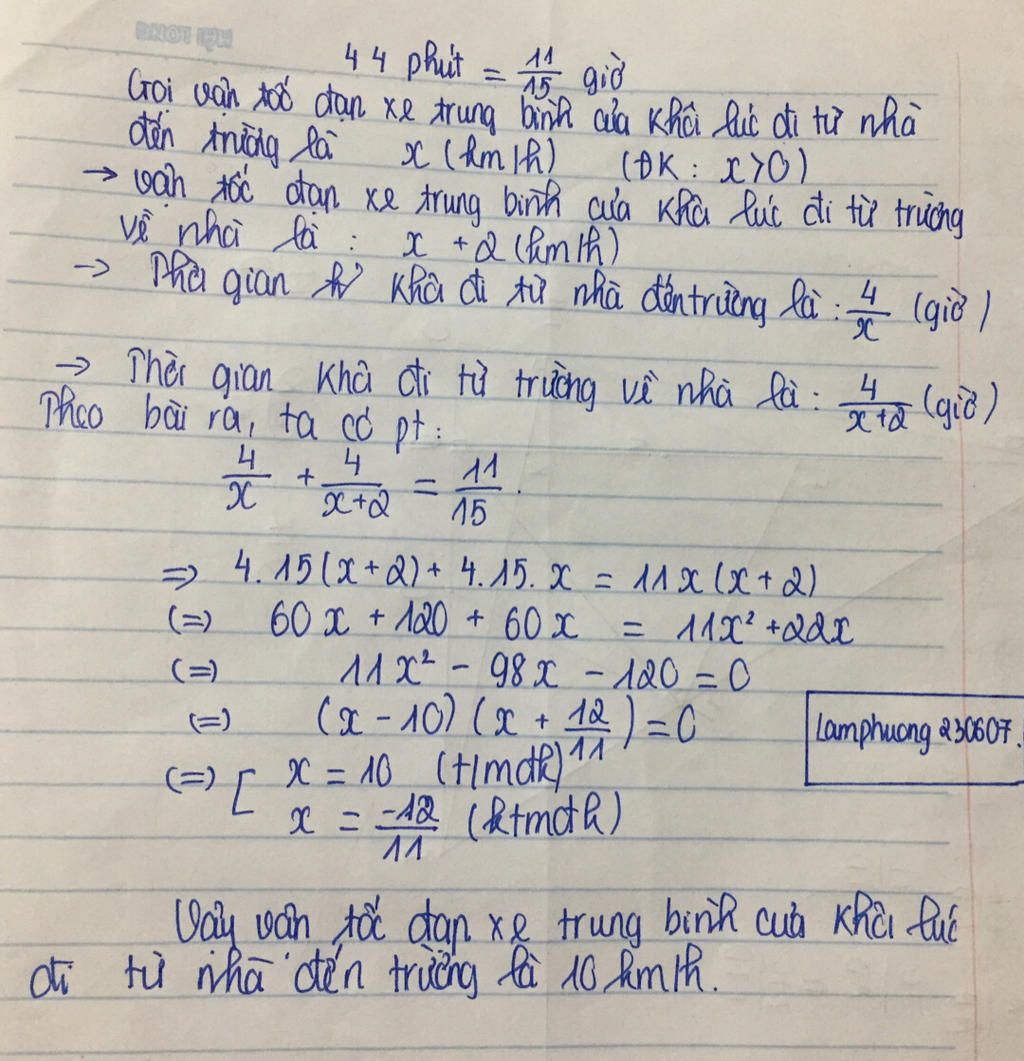 44 phút = 11/15 giờ
Gọi vận tốc đạp xe trung bình của Khôi lúc đi từ nhà
đến trường là x (km/h) (ĐK : x>0)
→ vận tốc đạp xe trung bình của Khôi lúc đi từ trường
về nhà là : x + 2 (km/h)
→ Thời gian Khôi đi từ nhà đến trường là : 4/x (giờ)
→ Thời gian Khôi đi từ trường về nhà là : 4/(x+2) (giờ)
Theo bài ra, ta có pt :
4/x + 4/(x+2) = 11/15 .
=> 4.15(x+2) + 4.15.x = 11x(x+2)
(=) 60x + 120 + 60x = 11x² + 22x
(=) 11x² - 98x - 120 = 0
(=) (x - 10) (x + 12/11) = 0
Lamphuong230607.
(=) [ x = 10 (t/mđk)
x = -12/11 (ktmđk)
Vậy vận tốc đạp xe trung bình của Khôi lúc
đi từ nhà đến trường là 10 km/h.